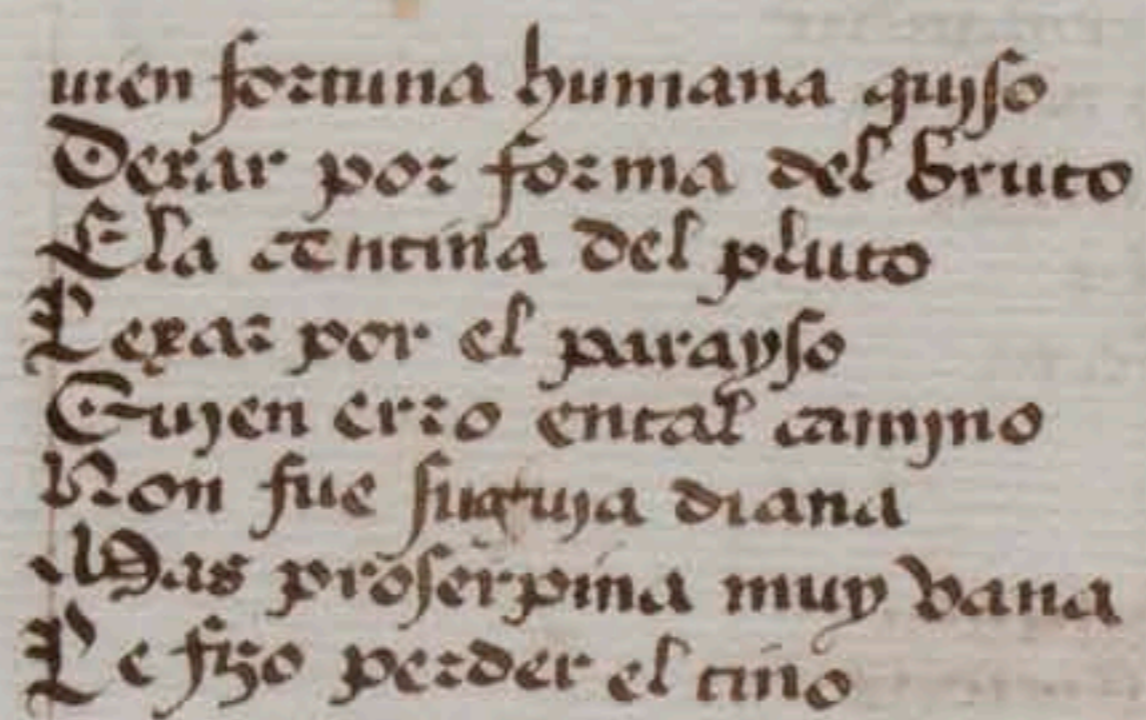 uien fortuna humana quyso
Dexar por forma del bruto
E la centina del pluto
Dexar por el parayso
Guyen erro en tal camyno
Non fue su guya diana
Mas proserpina muy vana
Le fizo perder el tino